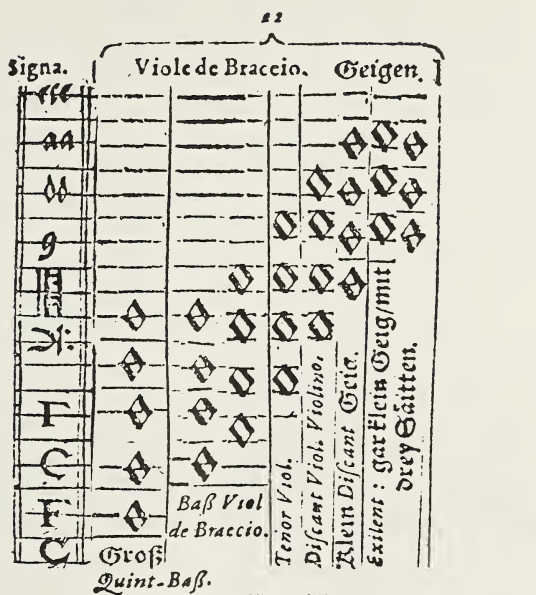 22
Signa. Viole de Braccio. Geigen.
eee
aa
dd
g
Γ
C
F
C
Groß Quint-Baß.
Baß Viol de Braccio.
Tenor Viol.
Discant Viol. Violino.
Klein Discant Geig.
Exilent: gar klein Geig/mit drey Säitten.